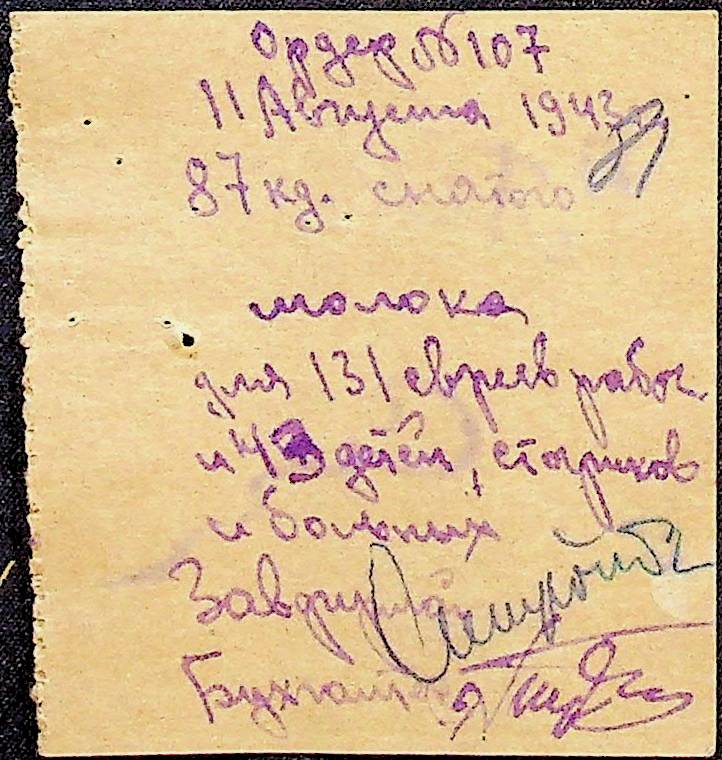 Ордер № 107
11 Августа 1943
87 кг. снятого
молока
для 131 евреев рабоч.
и 43 детей, стариков
и больных
Бухгалтер